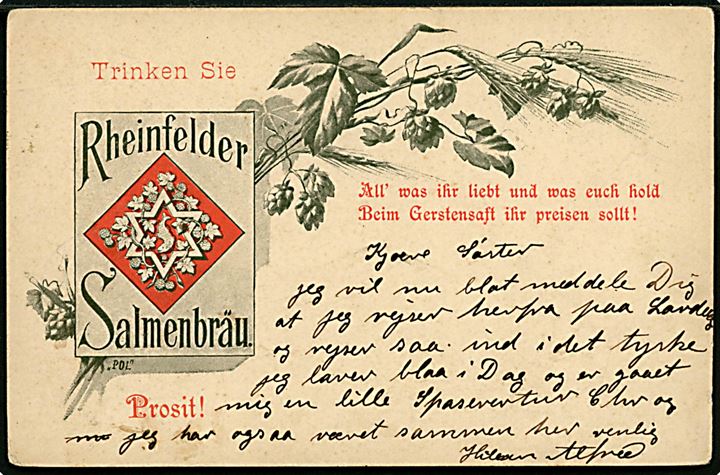 Trinken Sie
Rheinfelder
Salmenbräu.
"POL"
All' was ihr liebt und was euch hold
Beim Gerstensaft ihr preisen sollt!
Kjære Søster
jeg vil nu blot meddele Dig
at jeg rejser herfra paa Lørdag
og rejser saa ind i det tyske
jeg laver blaa i Dag og er gaaet
Prosit! mig en lille Spaseretur Chr og
jeg har ogsaa været sammen her venlig
Hilsen Alfred